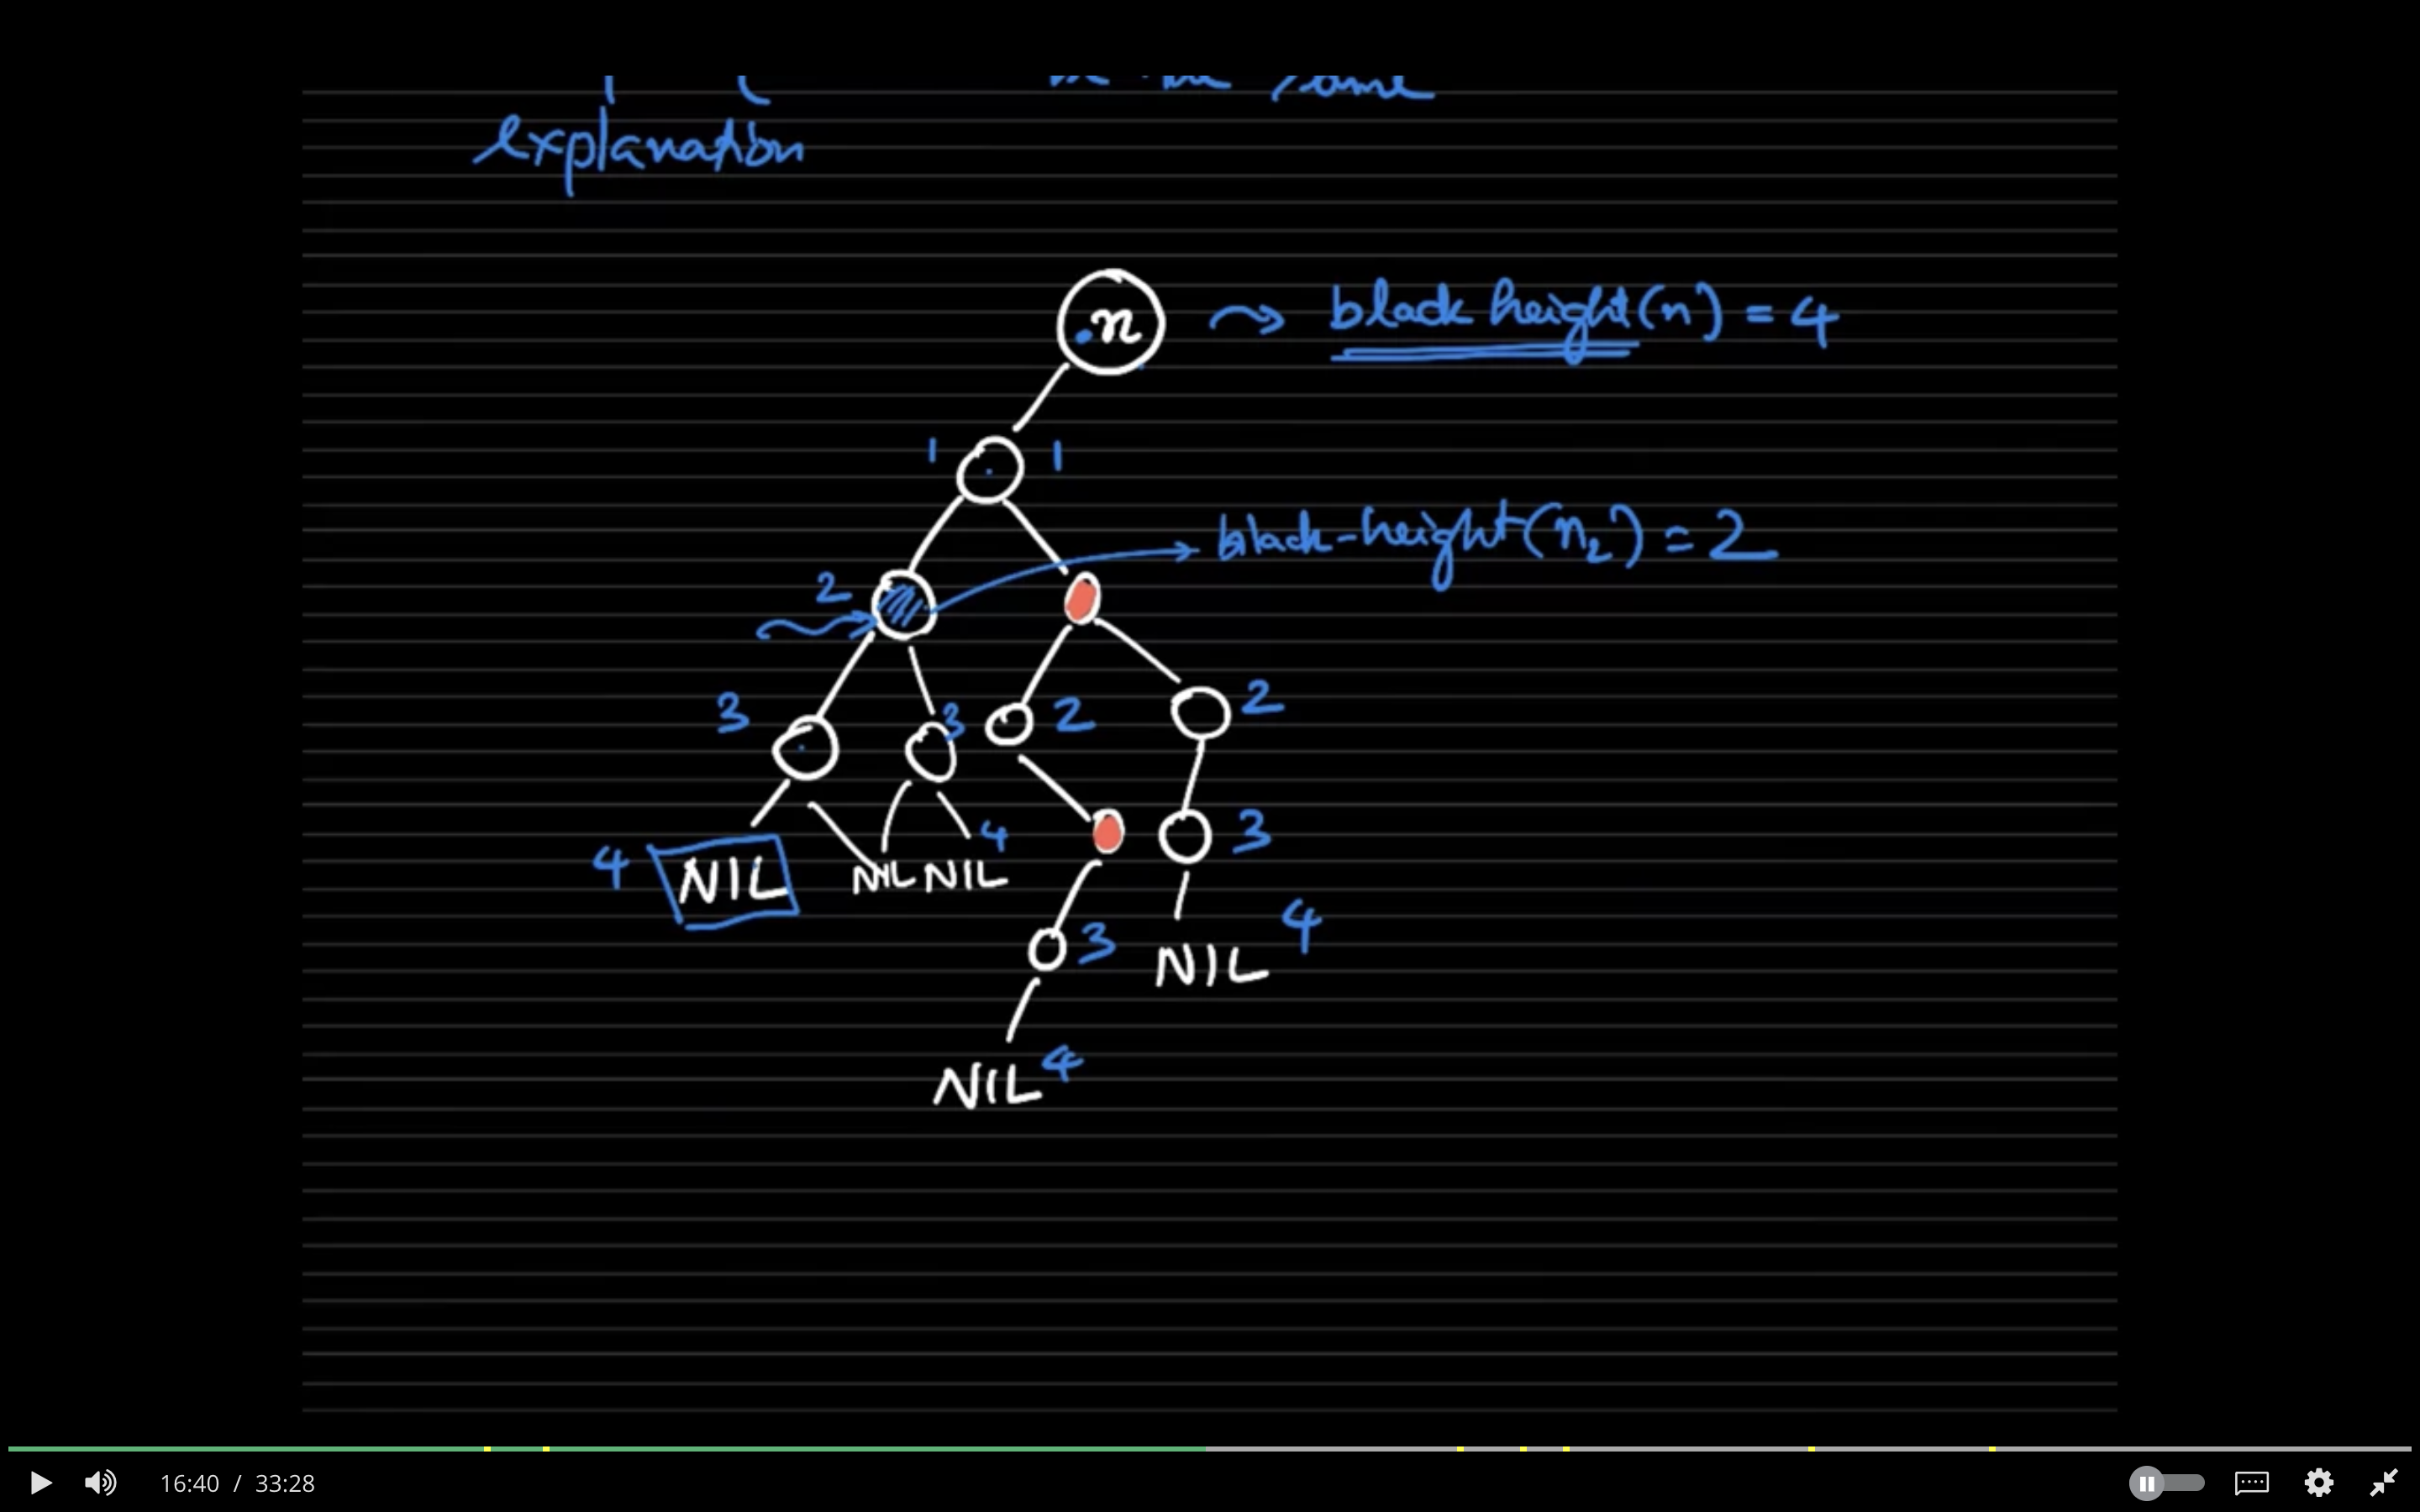 same
explanation
n
black height(n) = 4
1 1
black-height(n₂) = 2
2
3 3 2 2
4 NIL NIL NIL 4
3
3 NIL 4
NIL 4
16:40 / 33:28